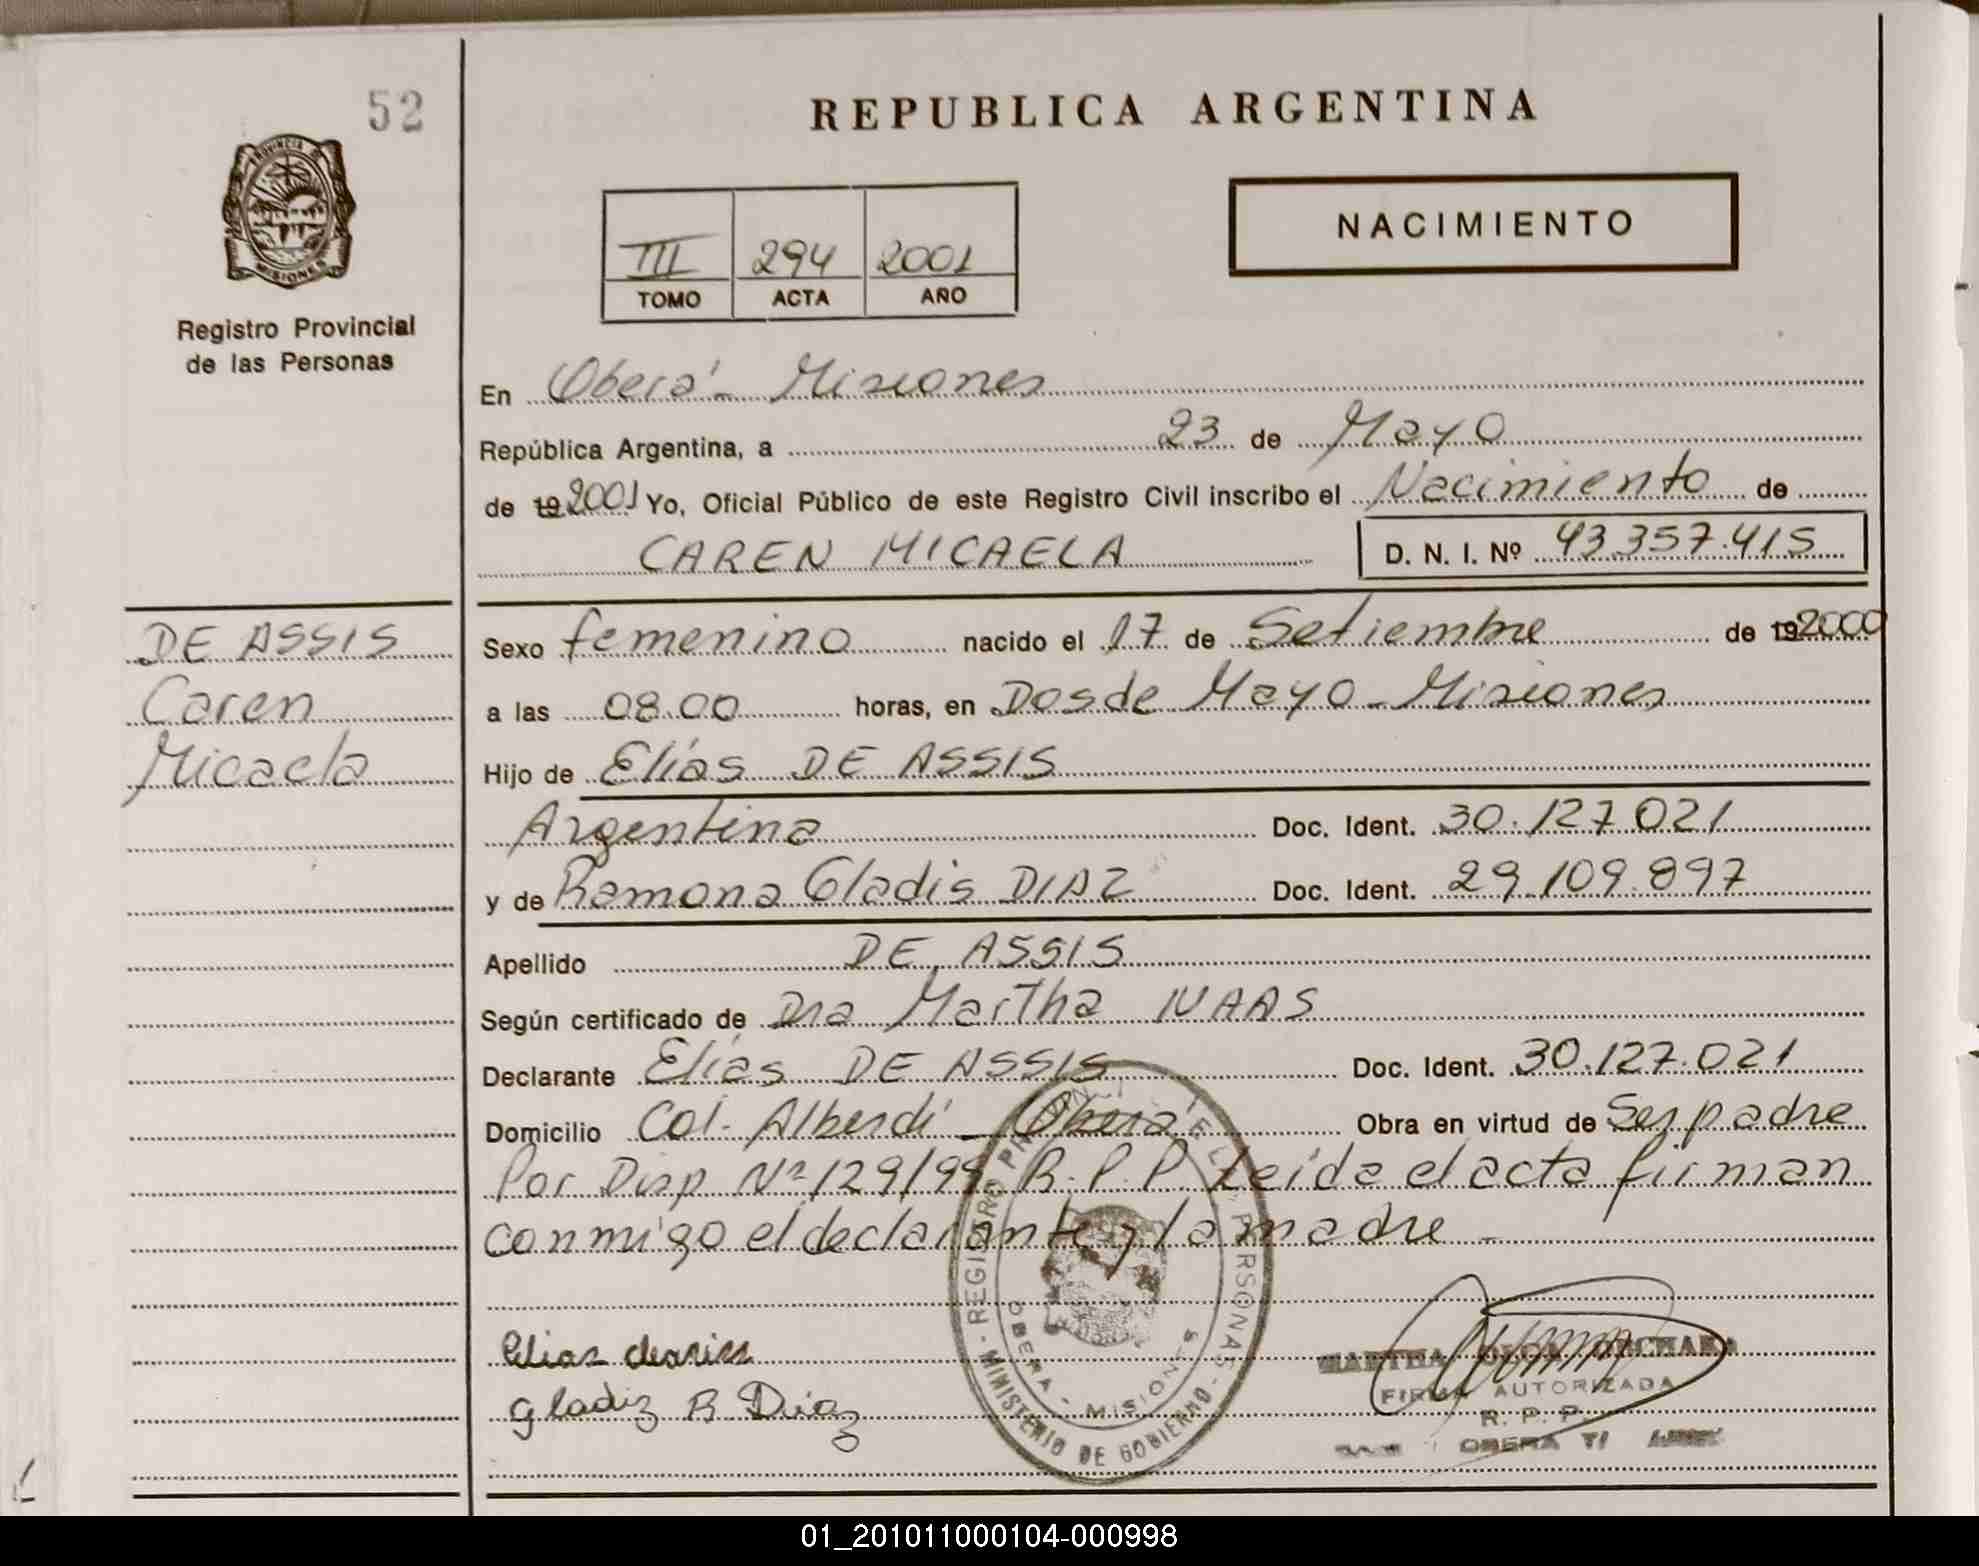 52
PROVINCIA DE
MISIONES
Registro Provincial
de las Personas
REPUBLICA ARGENTINA
NACIMIENTO
III 294 2001
TOMO ACTA AÑO
En Oberá - Misiones
República Argentina, a 23 de Mayo
de 19 2001 Yo, Oficial Público de este Registro Civil inscribo el Nacimiento de
CAREN MICAELA D. N. I. Nº 43.357.415
DE ASSIS
Caren
Micaela
Sexo femenino nacido el 17 de Setiembre de 19 2000
a las 08.00 horas, en Dos de Mayo - Misiones
Hijo de Elías DE ASSIS
Argentina Doc. Ident. 30.127.021
y de Ramona Gladis DIAZ Doc. Ident. 29.109.897
Apellido DE ASSIS
Según certificado de Dra Martha NAAS
Declarante Elías DE ASSIS Doc. Ident. 30.127.021
Domicilio Col. Alberdi - Oberá Obra en virtud de Ser padre
Por Disp Nº 129/99 R.P.P. Leida el acta firman
conmigo el declarante y la madre -
REGISTRO PERSONAS
OBERA - MISIONES
MINISTERIO DE GOBIERNO
Elias
Gladiz R Diaz
MARTHA OLGA
FIRMA AUTORIZADA
R. P. P.
OBERA
01_201011000104-000998